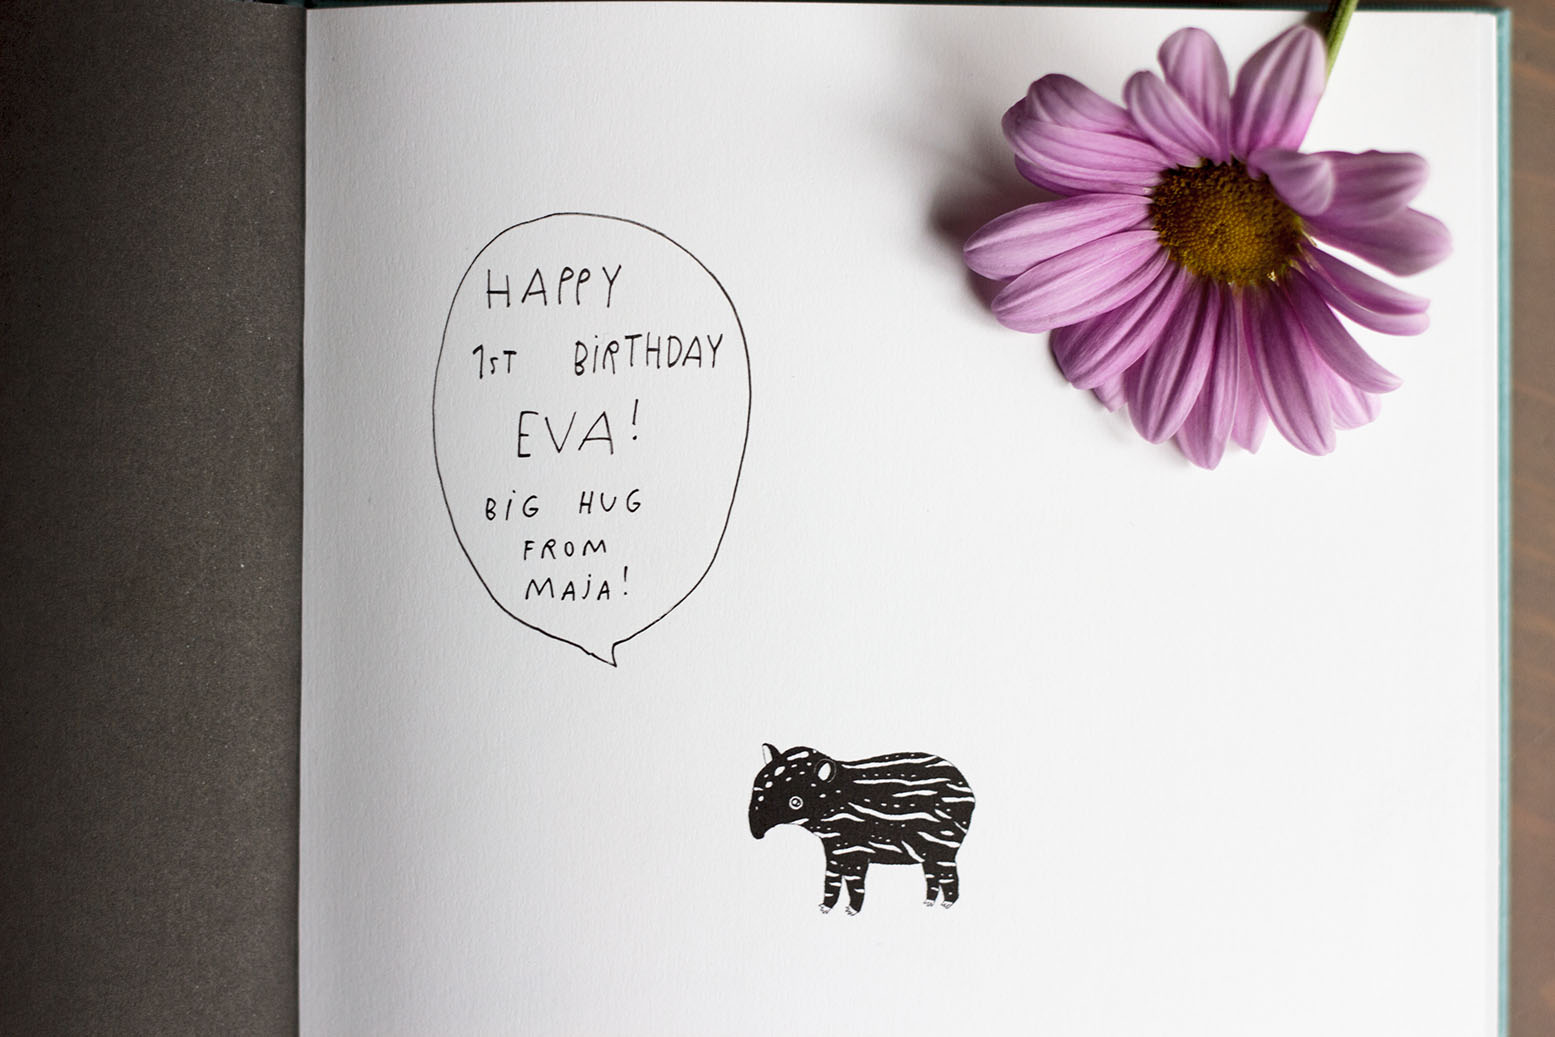 HAPPY
1ST BiRTHDAY
EVA!
BiG HUG
FROM
MAjA!